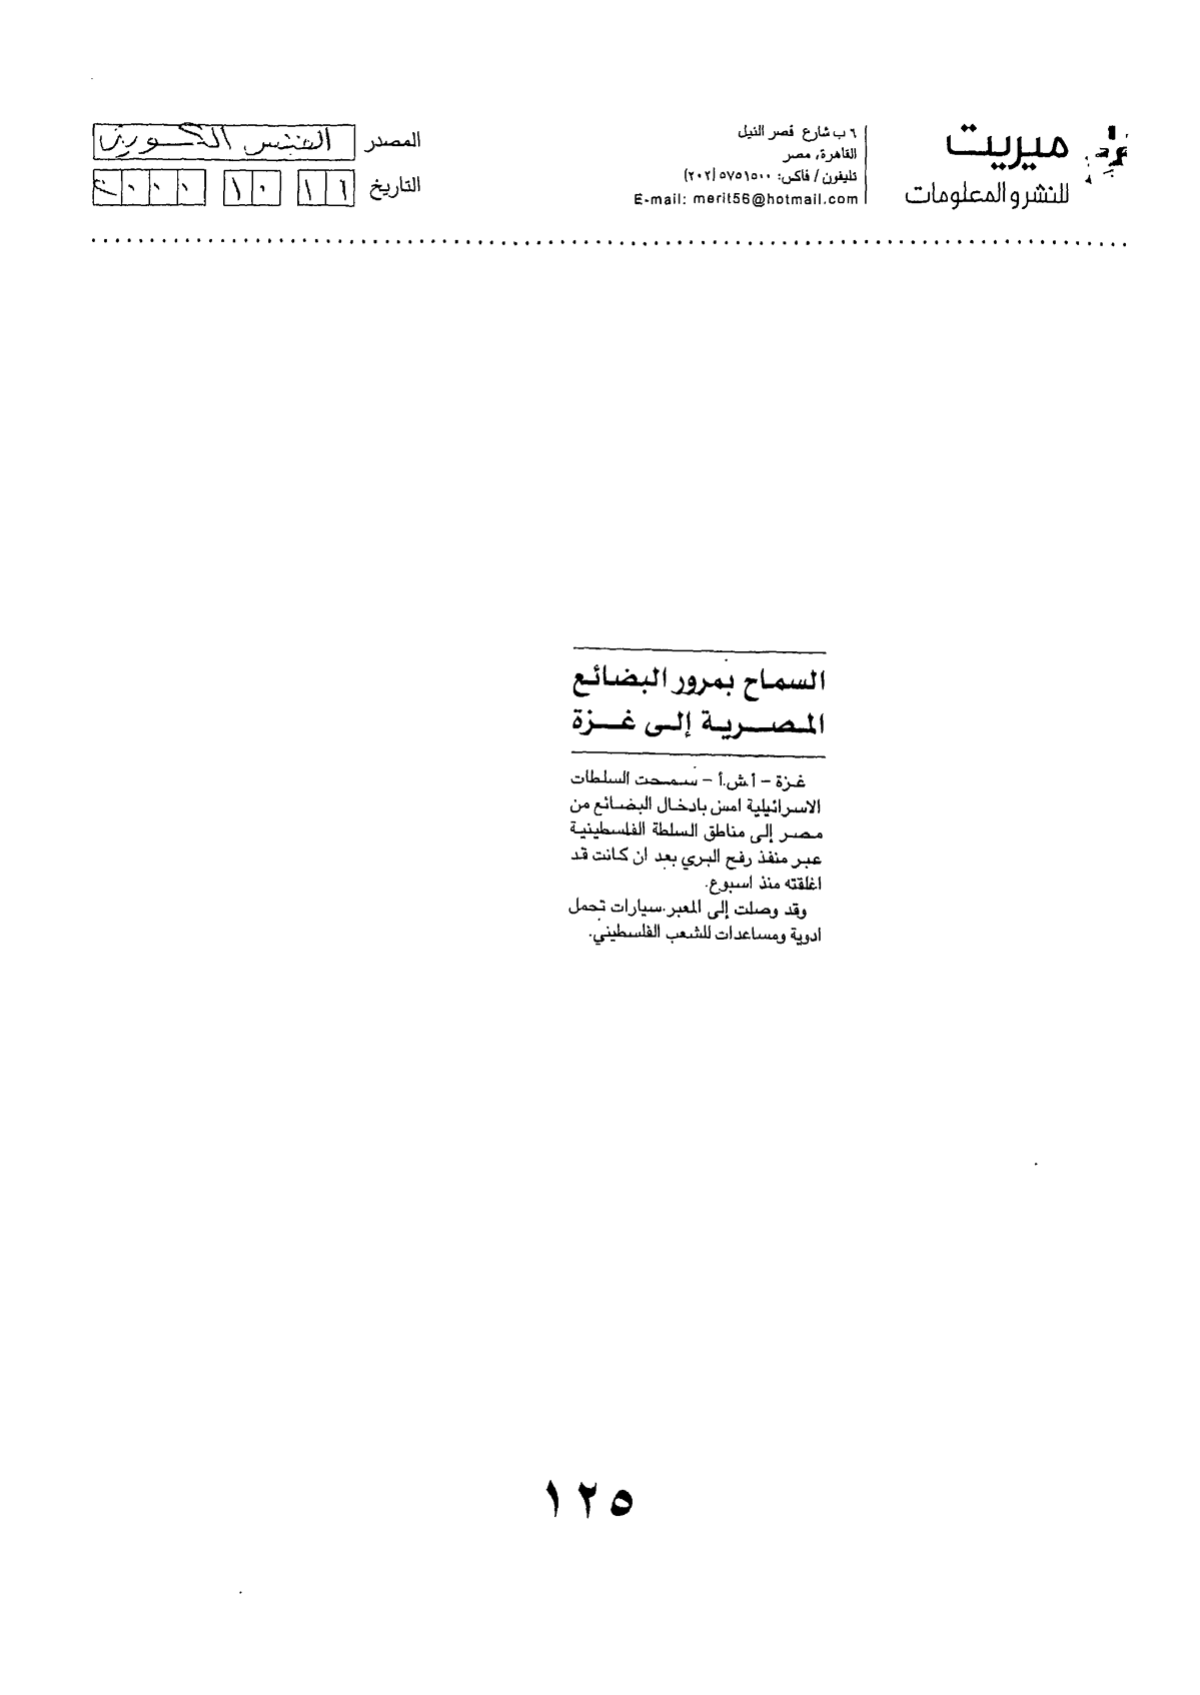 ميريت
للنشر والمعلومات
٦ ب شارع قصر النيل
القاهرة، مصر
تليفون / فاكس: ٥٧٥١٥٠٠ (٢٠٢)
E-mail: merit56@hotmail.com
المصدر القبس الكويتى
التاريخ ١٦ ١٠ ٢٠٠٠
السماح بمرور البضائع
المصرية إلى غزة
غزة - أ.ش.أ - سمحت السلطات
الاسرائيلية امس بادخال البضائع من
مصر إلى مناطق السلطة الفلسطينية
عبر منفذ رفح البري بعد ان كانت قد
اغلقته منذ اسبوع.
وقد وصلت إلى المعبر سيارات تحمل
ادوية ومساعدات للشعب الفلسطيني.
١٢٥